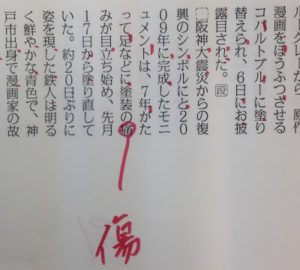 原作
漫画をほうふつさせる
コバルトブルーに塗り
替えられ、6日にお披
露目された。段
阪神大震災からの復
興のシンボルにと20
09年に完成したモニ
ュメントは、7年がた
って足などに塗装の
みが目立ち始め、先月
17日から塗り直して
いた。約20日ぶりに
姿を現した鉄人は明る
く鮮やかな青色で、神
戸市出身で漫画家の故
傷